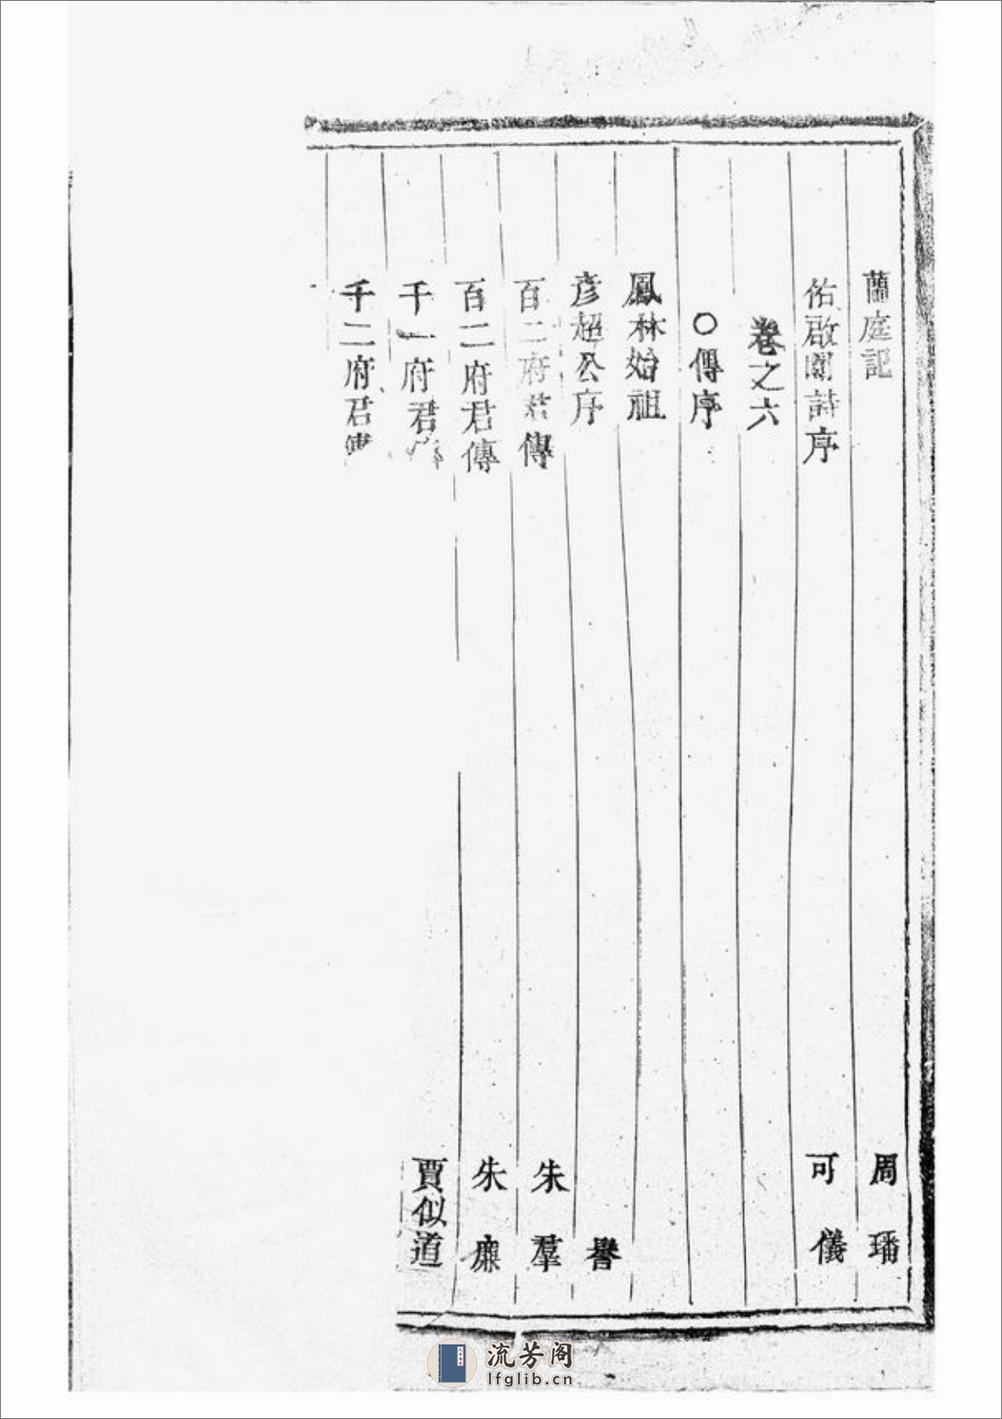 蘭庭記　周璠
佑啟闈詩序　可儀
卷之六
○傳序
鳳林始祖
彥超公序　譽
百二府君傳　朱羣
百二府君傳　朱廉
千一府君　賈似道
千二府君傳
流芳阁
lfglib.cn